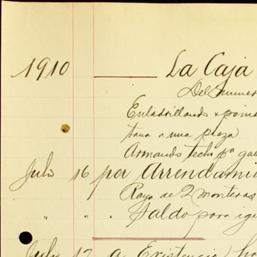 1910 La Caja
Del
Enladrillando
para una pieza
Armando techo pa
Julio 16 por Arrendami
Raya de 2 monteros
" " Saldo para
Julio 17 a Existencia